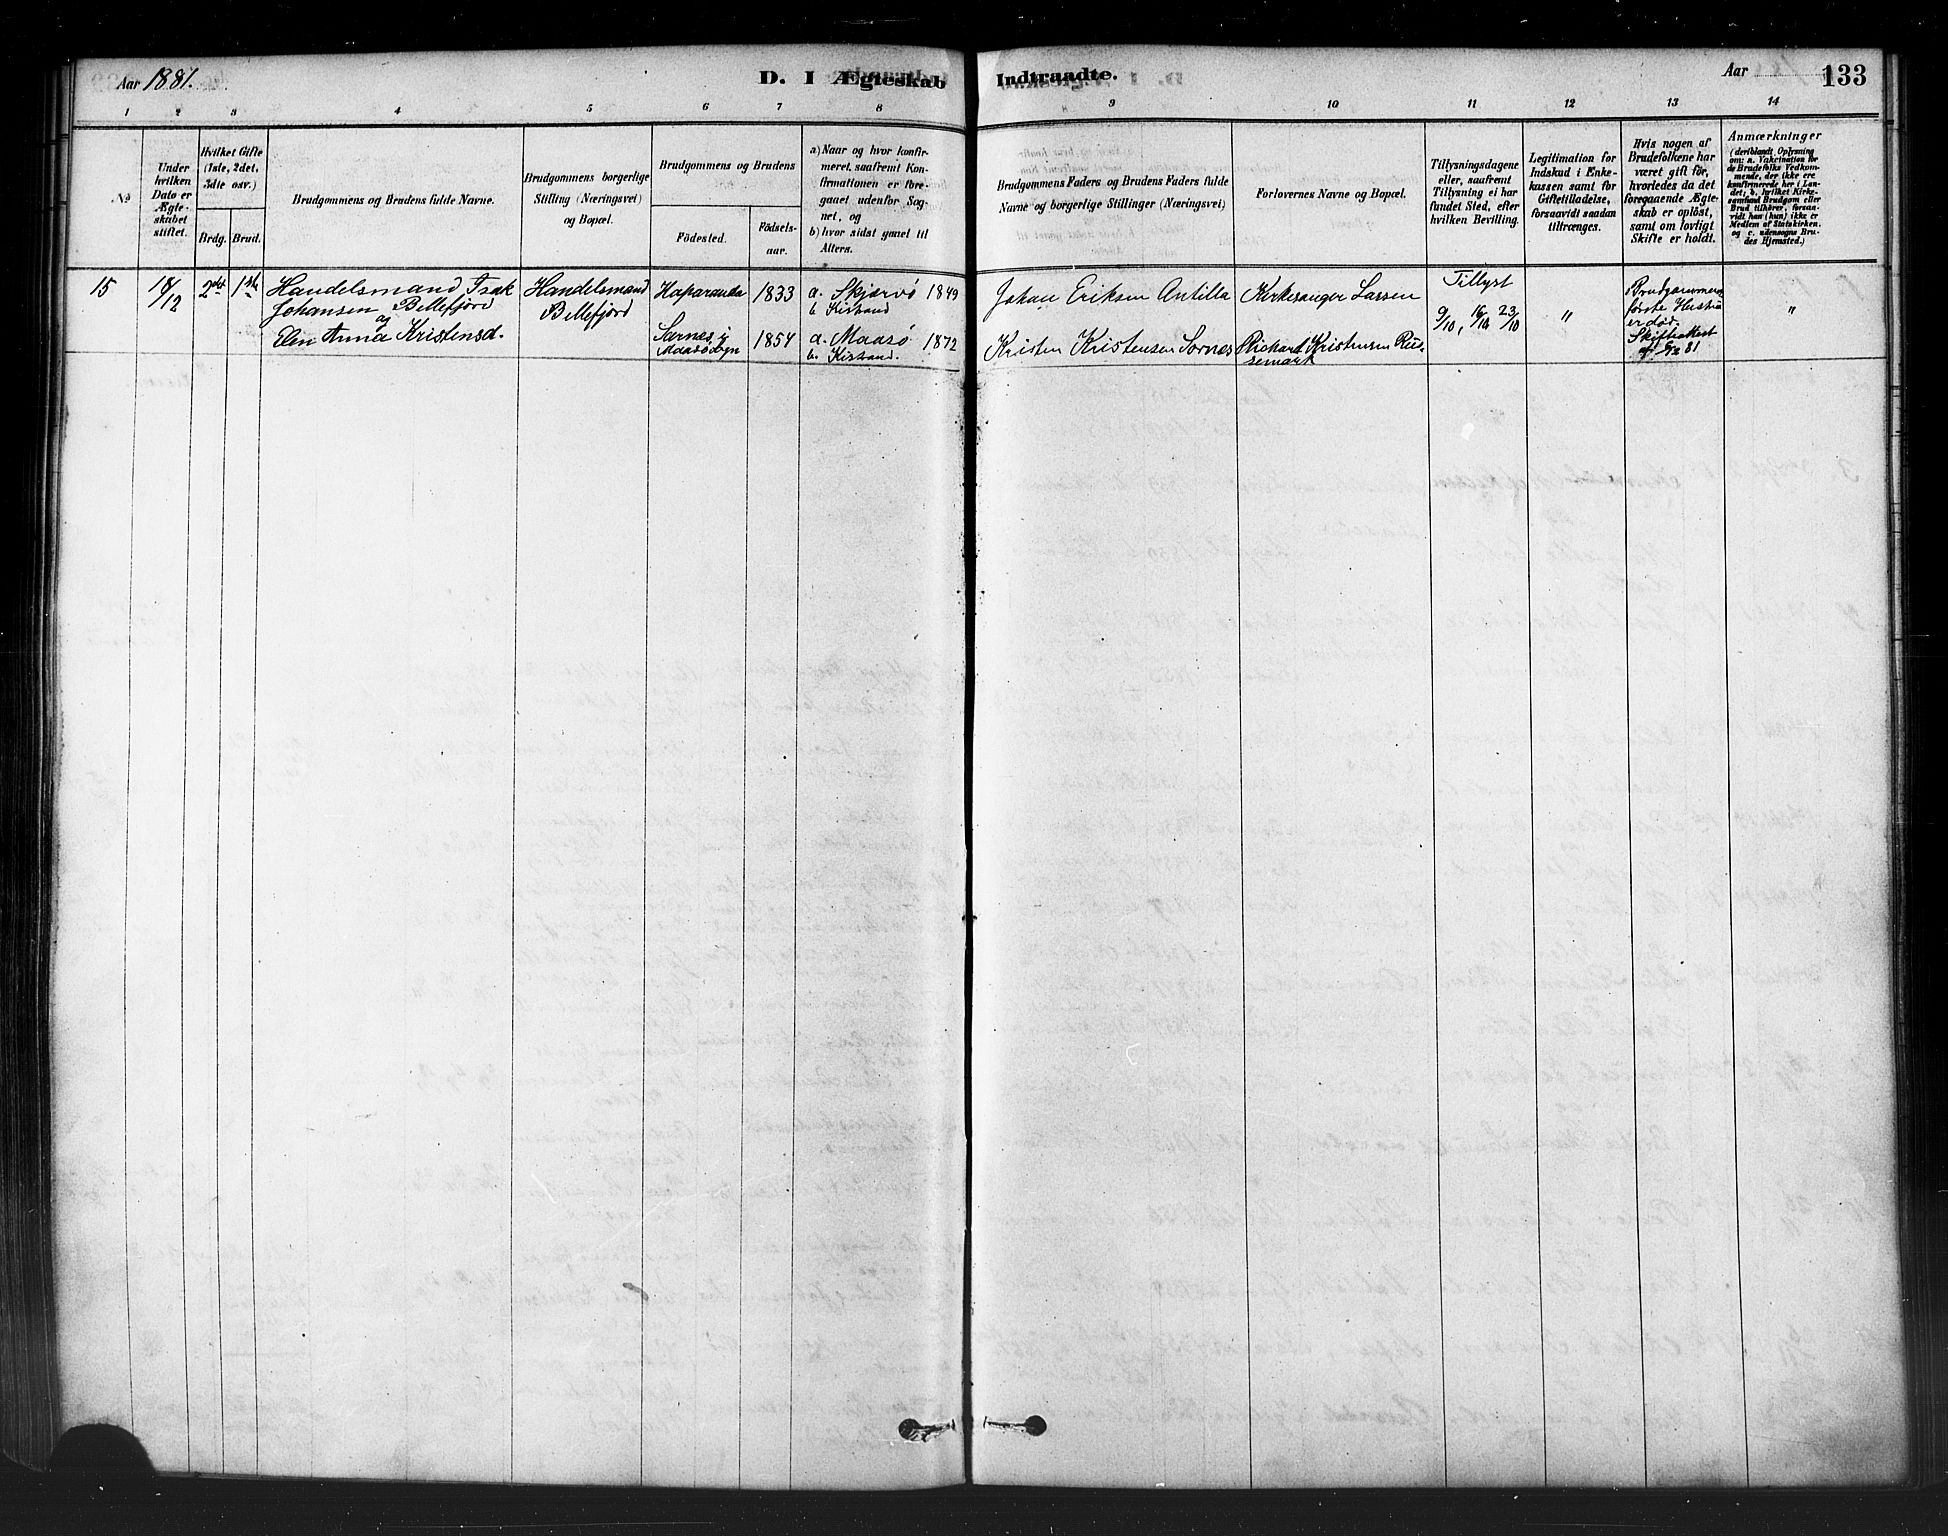 Aar 1881.
D. I Ægteskab
Indtraadte.
Aar
133
1 2 3 4 5 6 7 8 9 10 11 12 13 14
No
Under hvilken Dato er Ægteskabet stiftet.
Hvilket Gifte (1ste, 2det, 3die osv.)
Brdg. Brud.
Brudgommens og Brudens fulde Navne.
Brudgommens borgerlige Stilling (Næringsvei) og Bopæl.
Brudgommens og Brudens
Födested.
Födselsaar.
a) Naar og hvor konfirmeret, saafremt Konfirmationen er foregaaet udenfor Sognet, og
b) hvor sidst gaaet til Alters.
Brudgommens Faders og Brudens Faders fulde Navne og borgerlige Stillinger (Næringsvei)
Forlovernes Navne og Bopæl.
Tillysningsdagene eller, saafremt Tillysning ei har fundet Sted, efter hvilken Bevilling.
Legitimation for Indskud i Enkekassen samt for Giftetilladelse, forsaavidt saadan tiltrænges.
Hvis nogen af Brudefolkene har været gift før, hvorledes da det foregaaende Ægteskab er oplöst, samt om lovligt Skifte er holdt.
Anmærkninger (deriblandt Oplysning om: a. Vaksination for de Brudefolks Vedkommende, der ikke ere konfirmerede her i Landet; b. hvilket Kirkesamfund Brudgom eller Brud tilhörer, forsaavidt han (hun) ikke er Medlem af Statskirken, og c. udensogns Brudes Hjemsted.)
15
18/12
2det
1ste
Handelsmand Isak
Johansen Bellefjord
og
Elen Anna Kristensd.
Handelsmand
Bellefjord
Haparanda 1833
Sarnes i 1854
Maasøbyn
a. Skjærvø 1849
b. Kistrand
a. Maasø 1872
b. Kistrand.
Johan Eriksen Antilla
Kristen Kristensen Sarnes
Kirkesanger Larsen
Richard Kristensen Russemark
Tillyst
9/10, 16/10 23/10
"
Brudgommens
første Hustru
er død.
Skifteattest
81
"